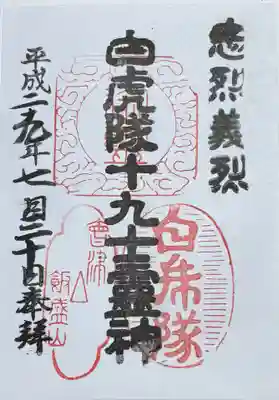 忠烈義烈
白虎隊十九士霊神
平成二十九年七月二十日奉拝
白虎隊
會津
飯盛山